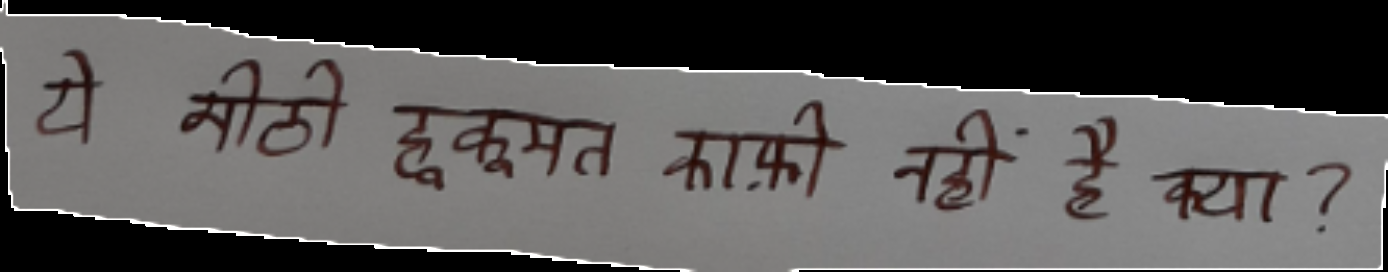 ये मीठी हूकूमत काफ़ी नहीं है क्या?